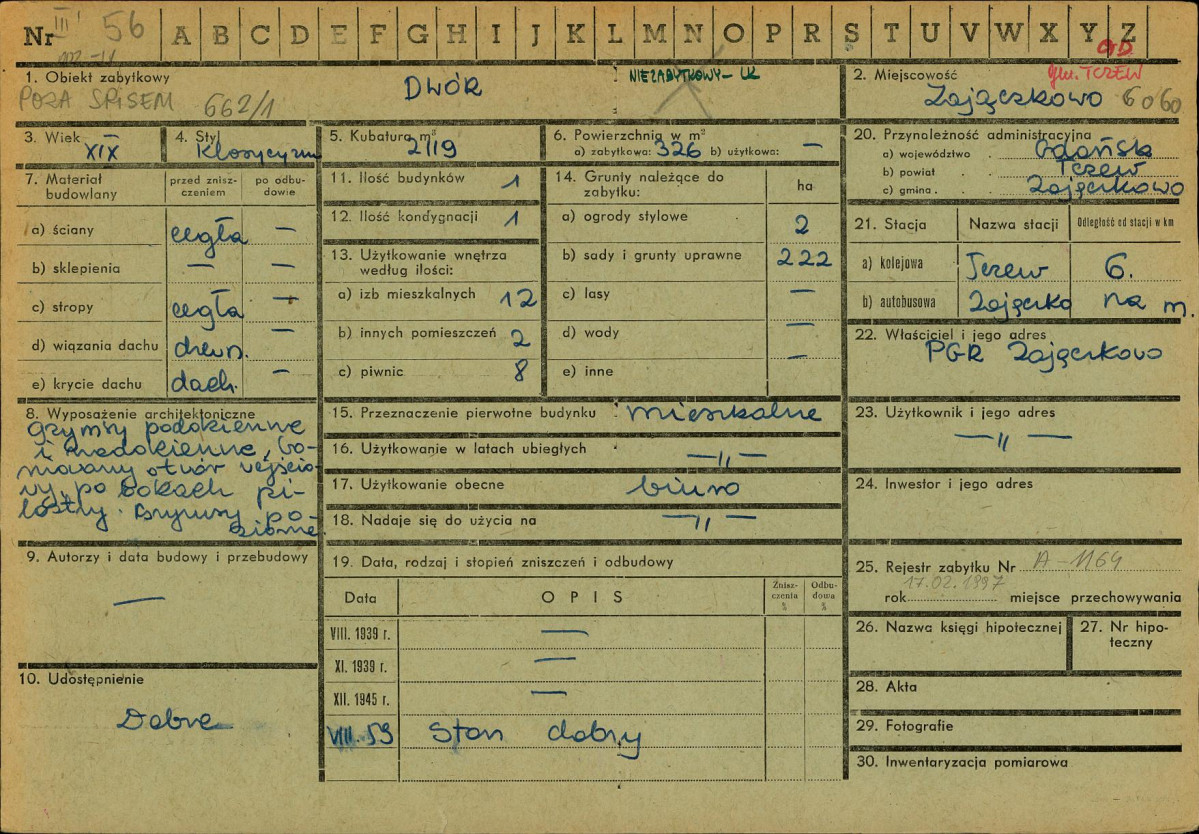 Nr III 56 A B C D E F G H I J K L M N O P R S T U V W X Y Z
1. Obiekt zabytkowy DWÓR NIEZABYTKOWY - UK
POZA SPISEM 662/1
2. Miejscowość gm. TCZEW
Zajączkowo 6060
3. Wiek XIX
4. Styl Klasycyzm
5. Kubatura m³ 2119
6. Powierzchnia w m²
a) zabytkowa: 326 b) użytkowa: —
7. Materiał budowlany
przed zniszczeniem
po odbudowie
a) ściany cegła —
b) sklepienia — —
c) stropy cegła —
d) wiązania dachu drewn. —
e) krycie dachu dach. —
8. Wyposażenie architektoniczne
Gzymsy podokienne
i nadokienne, bo-
niowany otwór wejścio-
wy, po bokach pi-
lastry. Gzymsy po-
ziome.
9. Autorzy i data budowy i przebudowy
—
10. Udostępnienie
Dobre
11. Ilość budynków 1
12. Ilość kondygnacji 1
13. Użytkowanie wnętrza
według ilości:
a) izb mieszkalnych 12
b) innych pomieszczeń 2
c) piwnic 8
14. Grunty należące do
zabytku: ha
a) ogrody stylowe 2
b) sady i grunty uprawne 222
c) lasy —
d) wody —
e) inne —
15. Przeznaczenie pierwotne budynku mieszkalne
16. Użytkowanie w latach ubiegłych — " —
17. Użytkowanie obecne biuro
18. Nadaje się do użycia na — " —
19. Data, rodzaj i stopień zniszczeń i odbudowy
Data OPIS Zniszczenia % Odbudowa %
VIII. 1939 r. —
XI. 1939 r. —
XII. 1945 r. —
VIII. 59 Stan dobry
20. Przynależność administracyjna
a) województwo Gdańsk
b) powiat Tczew
c) gmina Zajączkowo
21. Stacja Nazwa stacji Odległość od stacji w km
a) kolejowa Tczew 6.
b) autobusowa Zajączko na m.
22. Właściciel i jego adres
PGR Zajączkowo
23. Użytkownik i jego adres
— " —
24. Inwestor i jego adres
25. Rejestr zabytku Nr A-1164
rok 17.02.1997 miejsce przechowywania
26. Nazwa księgi hipotecznej
27. Nr hipo-
teczny
28. Akta
29. Fotografie
30. Inwentaryzacja pomiarowa